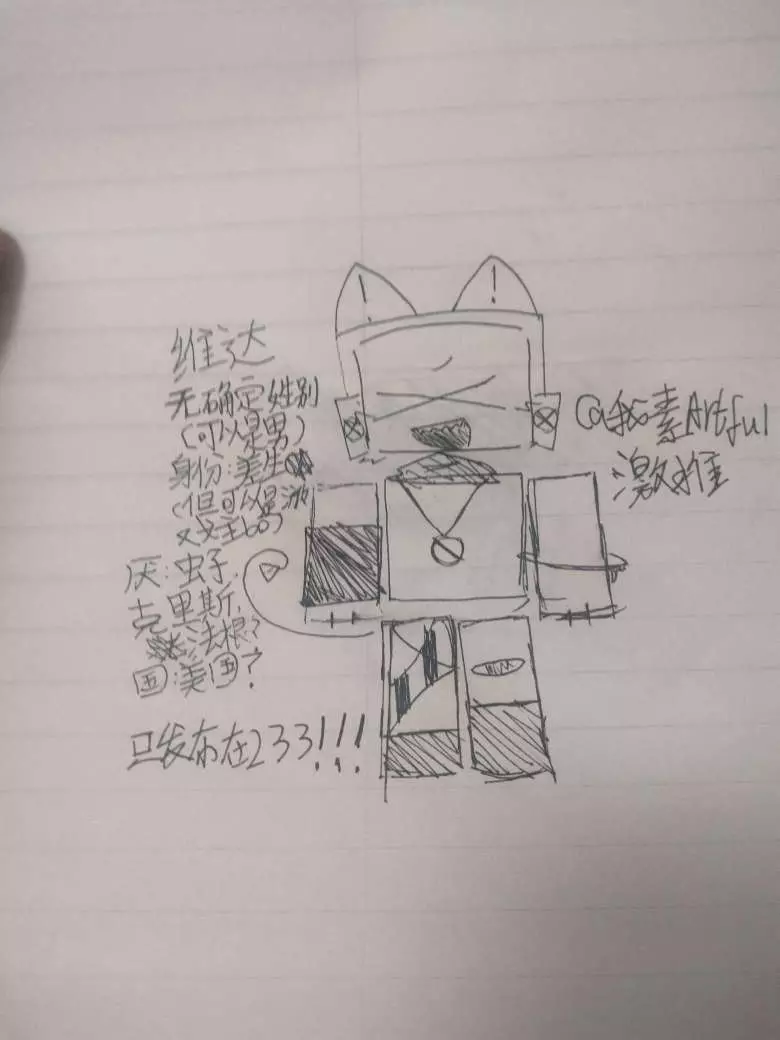 维达
无确定姓别
(可以是男)
身份:美生
(但可以是派
对主600)
厌:虫子,
克里斯,
法根?
国:美国?
只发布在233!!!
! !
@我素Artful
激推